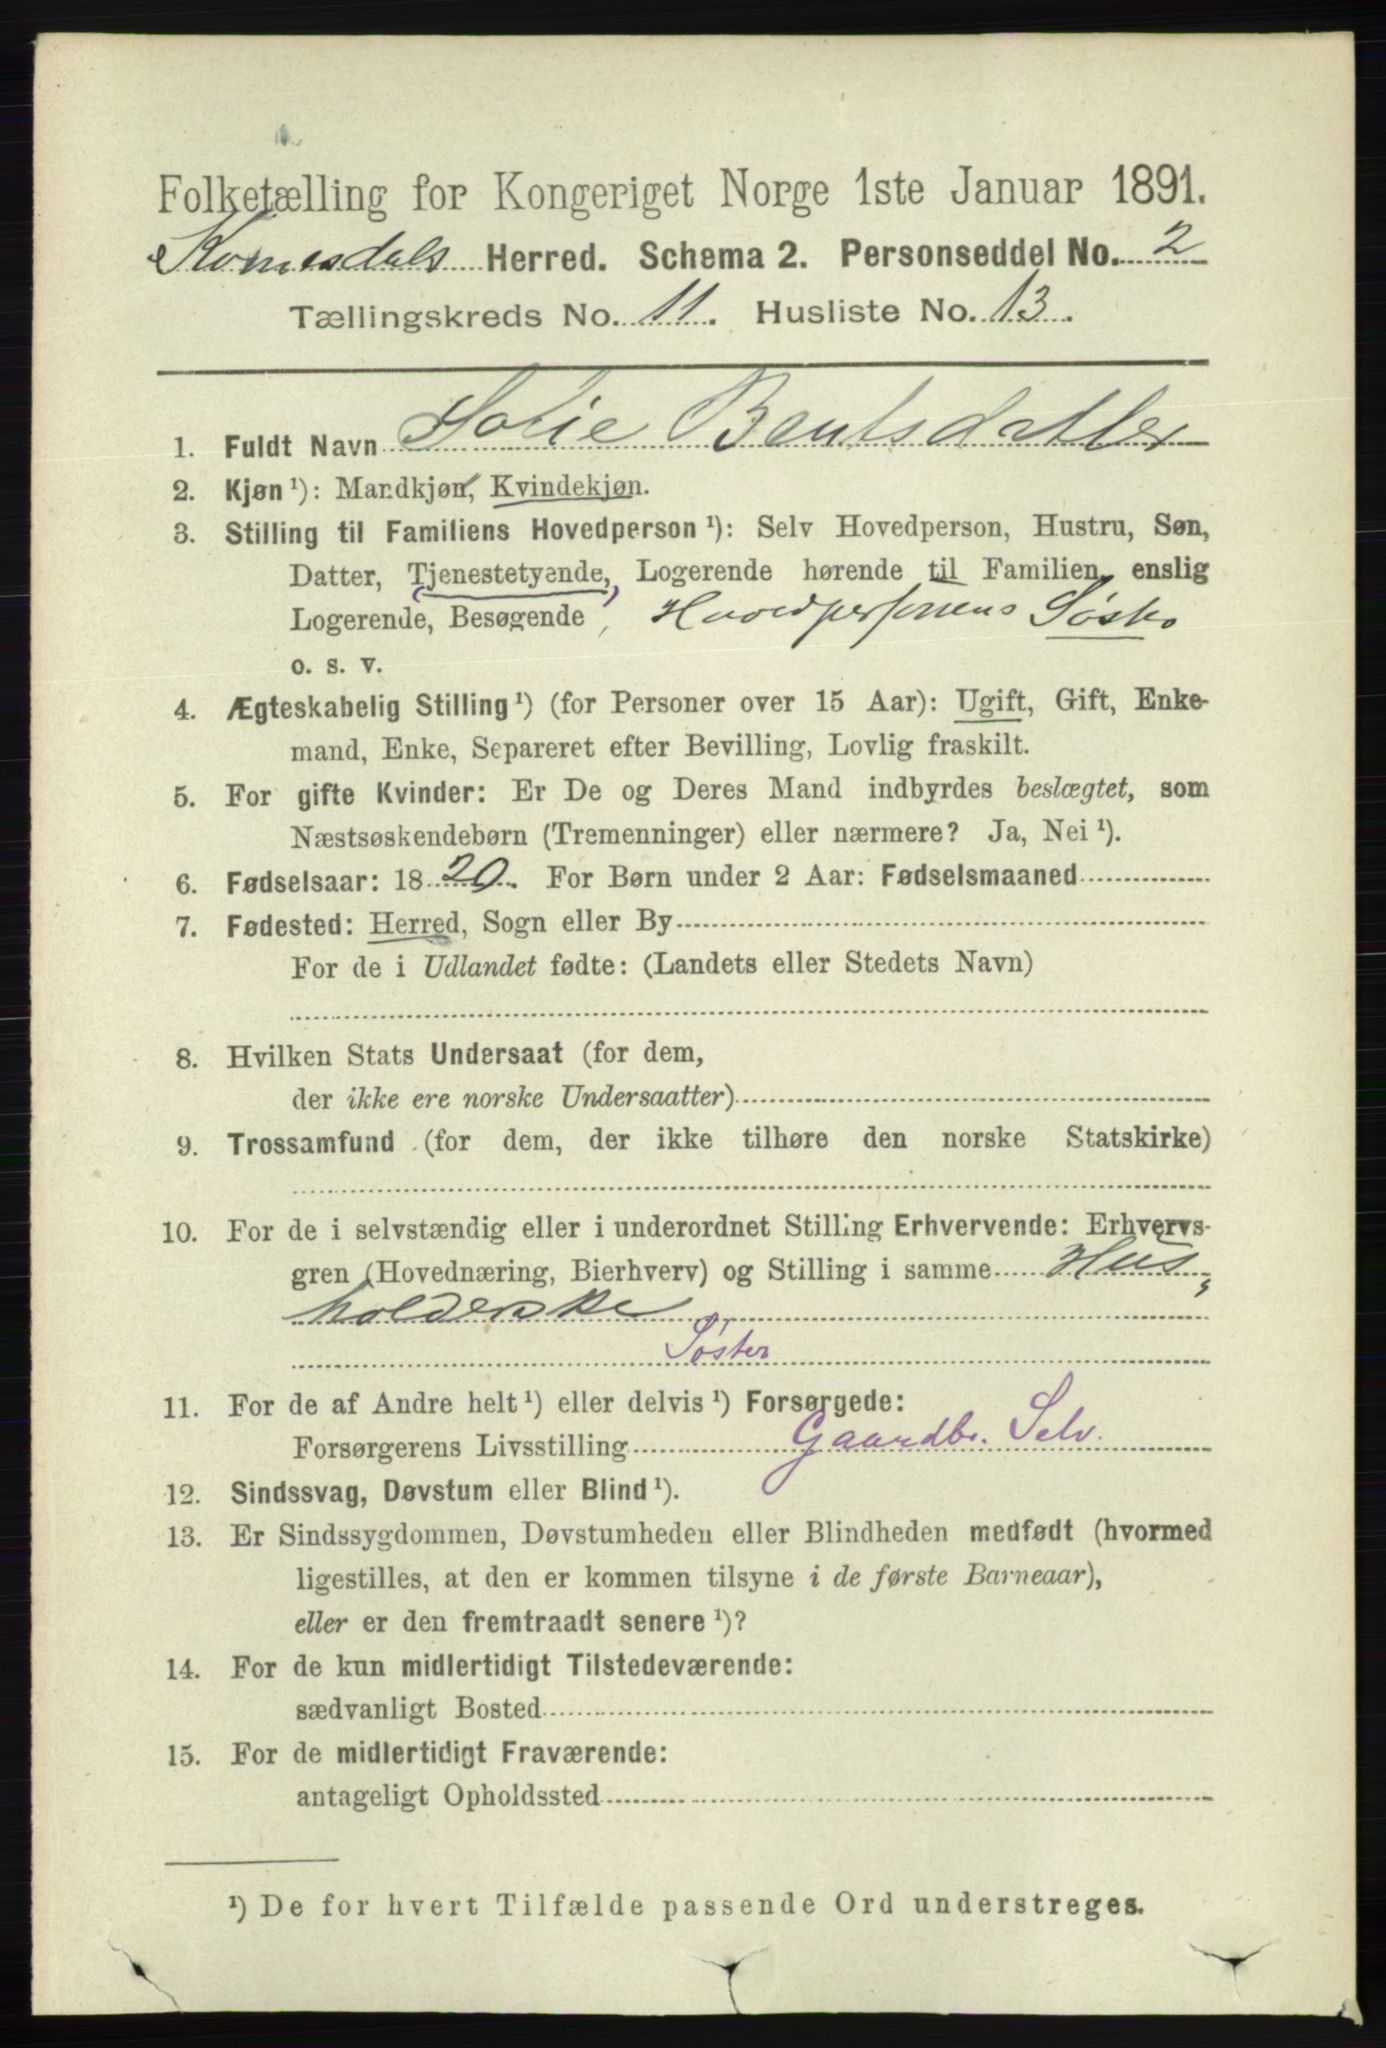 Folketælling for Kongeriget Norge 1ste Januar 1891.
Komnesdals Herred. Schema 2. Personseddel No. 2
Tællingskreds No. 11. Husliste No. 13.
1. Fuldt Navn Sofie Bentsdatter
2. Kjøn ¹): Mandkjøn, Kvindekjøn.
3. Stilling til Familiens Hovedperson ¹): Selv Hovedperson, Hustru, Søn,
Datter, Tjenestetyende, Logerende hørende til Familien, enslig
Logerende, Besøgende, Hovedpersonens Søster
o. s. v.
4. Ægteskabelig Stilling ¹) (for Personer over 15 Aar): Ugift, Gift, Enke-
mand, Enke, Separeret efter Bevilling, Lovlig fraskilt.
5. For gifte Kvinder: Er De og Deres Mand indbyrdes beslægtet, som
Næstsøskendebørn (Tremenninger) eller nærmere? Ja, Nei ¹).
6. Fødselsaar: 1820. For Børn under 2 Aar: Fødselsmaaned
7. Fødested: Herred, Sogn eller By
For de i Udlandet fødte: (Landets eller Stedets Navn)
8. Hvilken Stats Undersaat (for dem,
der ikke ere norske Undersaatter)
9. Trossamfund (for dem, der ikke tilhøre den norske Statskirke)
10. For de i selvstændig eller i underordnet Stilling Erhvervende: Erhvervs-
gren (Hovednæring, Bierhverv) og Stilling i samme Hus,
holderske
Søster
11. For de af Andre helt ¹) eller delvis ¹) Forsørgede:
Forsørgerens Livsstilling Gaardbr. Selv.
12. Sindssvag, Døvstum eller Blind ¹).
13. Er Sindssygdommen, Døvstumheden eller Blindheden medfødt (hvormed
ligestilles, at den er kommen tilsyne i de første Barneaar),
eller er den fremtraadt senere ¹)?
14. For de kun midlertidigt Tilstedeværende:
sædvanligt Bosted
15. For de midlertidigt Fraværende:
antageligt Opholdssted
¹) De for hvert Tilfælde passende Ord understreges.